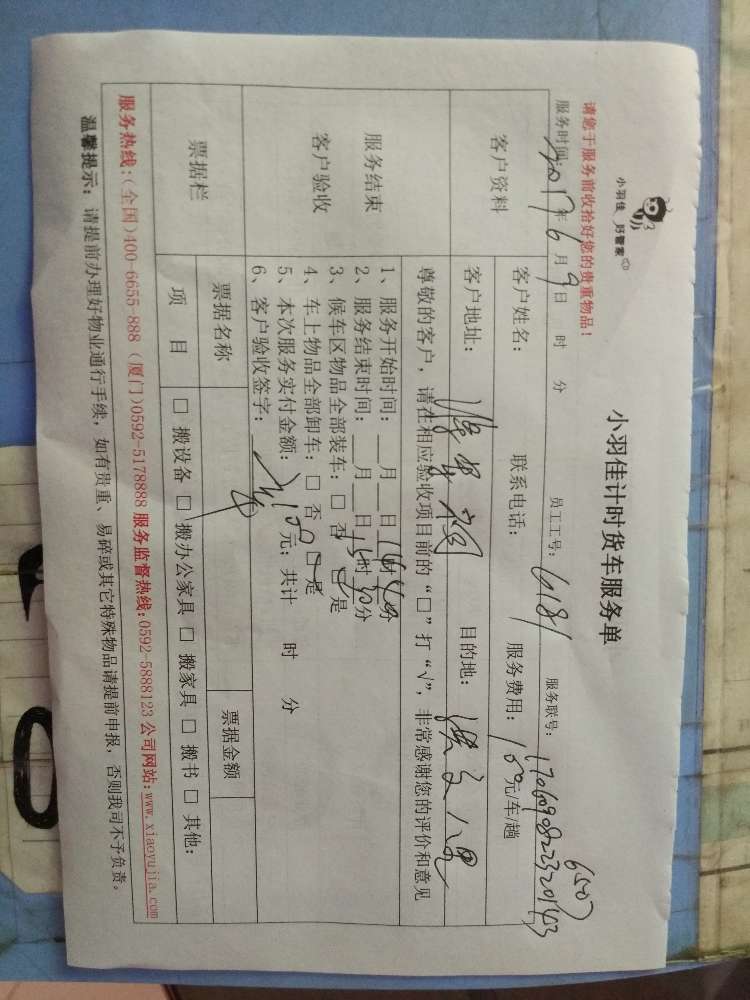 小羽佳 好管家
小羽佳计时货车服务单
请您于服务前收拾好您的贵重物品！
员工工号：6181 服务联号：17060908223201743
6507
服务时间：2017年6月9日 时 分
客户资料 客户姓名： 联系电话： 服务费用：150元/车/趟
客户地址： 目的地：
尊敬的客户，请在相应验收项目前的“□”打“√”，非常感谢您的评价和意见
服务结束
客户验收
1、服务开始时间：__月__日14时40分
2、服务结束时间：__月__日15时30分
3、候车区物品全部装车：□ 否 □ 是
4、车上物品全部卸车：□ 否 □ 是
5、本次服务实付金额：150元；共计 时 分
6、客户验收签字：
票据栏 票据名称 票据金额
项 目 □ 搬设备 □ 搬办公家具 □ 搬家具 □ 搬书 □ 其他：
服务热线：(全国)400-6655-888 (厦门)0592-5178888 服务监督热线：0592-5888123 公司网站：www.xiaoyujia.com
温馨提示：请提前办理好物业通行手续，如有贵重、易碎或其它特殊物品请提前申报，否则我司不予负责。